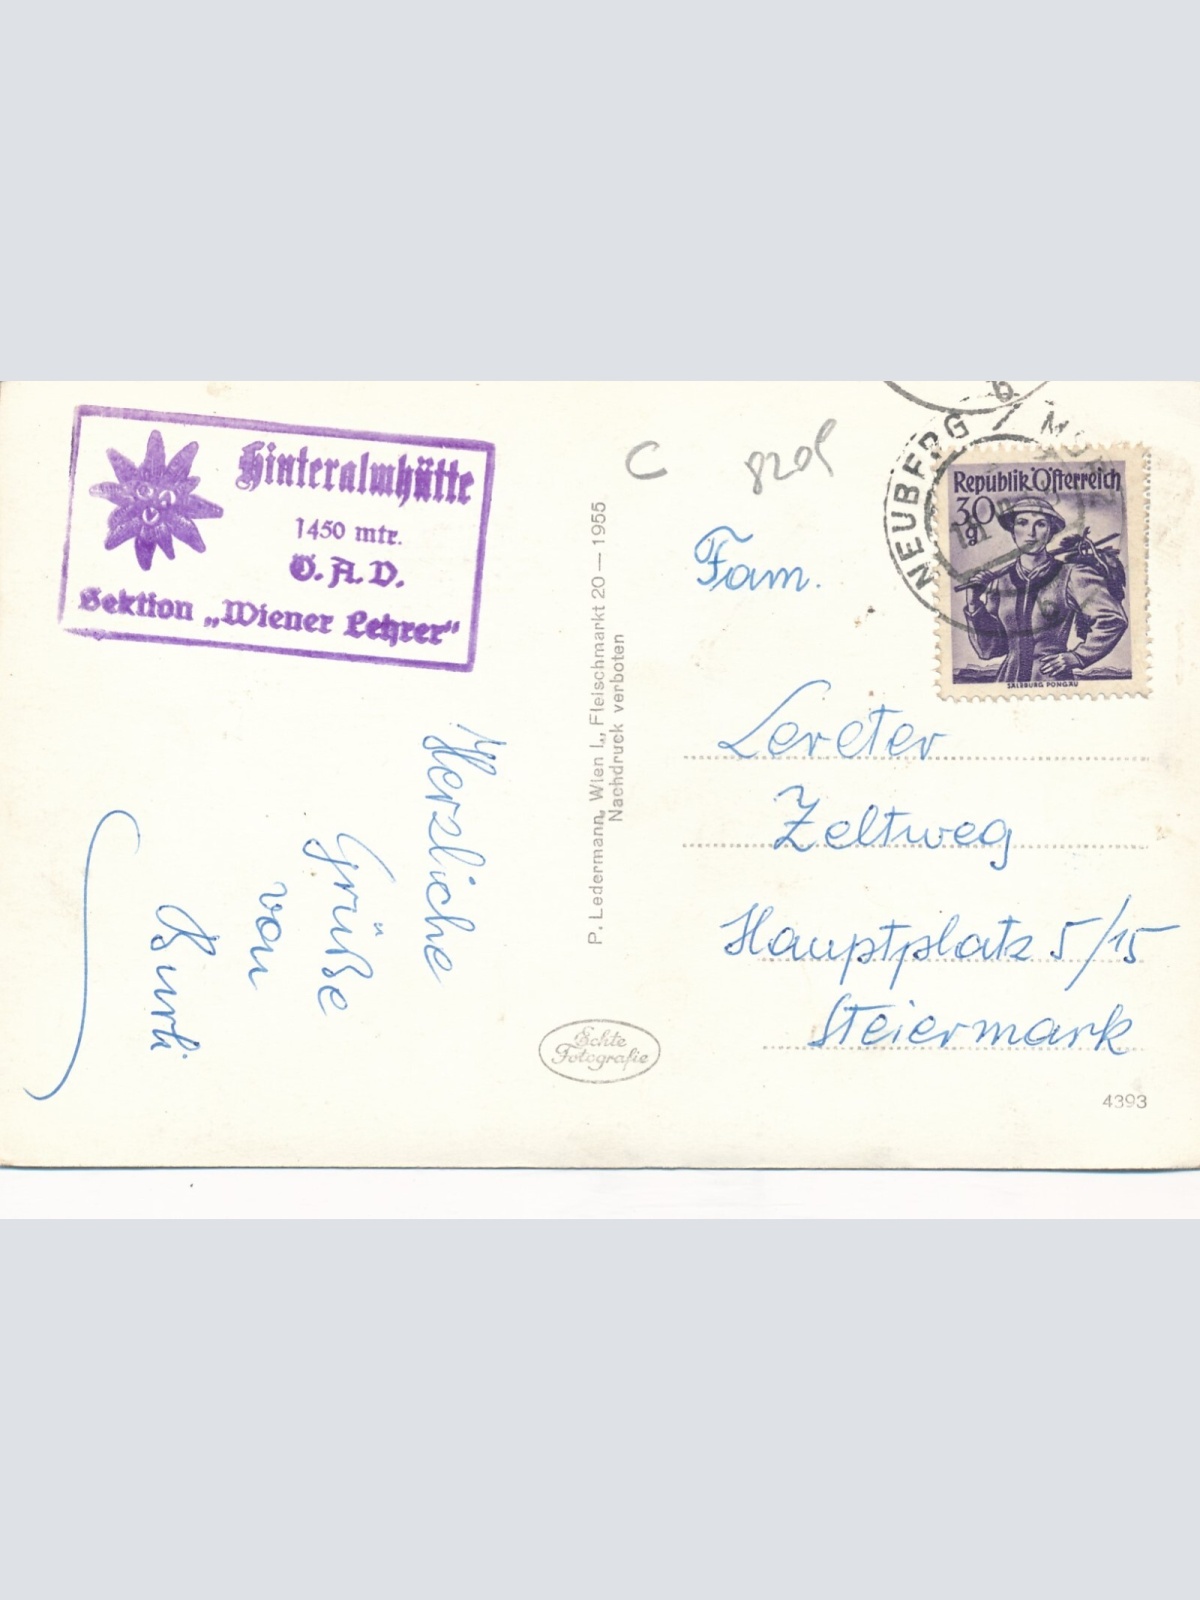 Hinteralmhütte
1450 mtr.
Ö.A.V.
Sektion „Wiener Lehrer"
Herzliche
Grüße
von
Burli
P. Ledermann, Wien I., Fleischmarkt 20 — 1955
Nachdruck verboten
Echte
Fotografie
C
NEUBERG
b
Republik Österreich
30 g
SALZBURG PONGAU
Fam.
Lereter
Zeltweg
Hauptplatz 5/15
Steiermark
4393